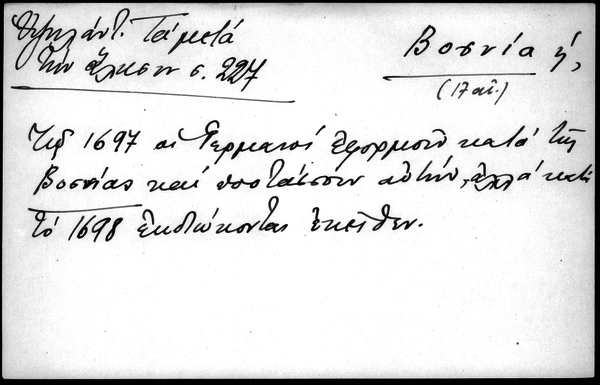 Ὑψηλάντ. Τὰ μετὰ
τὴν ἅλωσιν σ. 227
Βοσνία ἡ,
(17 αἰ.)
Τῷ 1697 οἱ Γερμανοί ἐφορμοῦν κατά τῆς
Βοσνίας καί ὑποτάσσουν αὐτήν, ἀλλά κατά
τό 1698 ἐκδιώκονται ἐκεῖθεν.